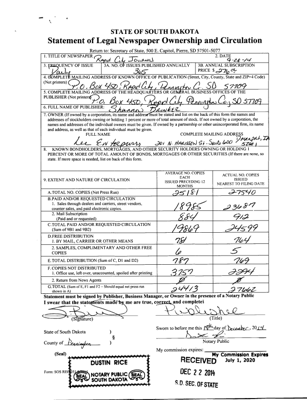 STATE OF SOUTH DAKOTA
Statement of Legal Newspaper Ownership and Circulation
Return to: Secretary of State, 500 E. Capitol, Pierre, SD 57501-5077
1. TITLE OF NEWSPAPER Rapid City Journal
2. DATE
3. FREQUENCY OF ISSUE Daily
3A. NO. OF ISSUES PUBLISHED ANNUALLY 365
3B. ANNUAL SUBSCRIPTION PRICE
4. COMPLETE MAILING ADDRESS OF KNOWN OFFICE OF PUBLICATION (Street, City, County, State and ZIP+4 Code)
(Not printers) P.O. Box 450, Rapid City, Pennington Co. SD 57709
5. COMPLETE MAILING ADDRESS OF THE HEADQUARTERS OR GENERAL BUSINESS OFFICES OF THE
PUBLISHER (Not printer) P.O. Box 450, Rapid City, Pennington Co, SD 57709
6. FULL NAME OF PUBLISHER: Shannon Brinker
7. OWNER (If owned by a corporation, its name and address must be stated and also
FULL NAME
COMPLETE MAILING ADDRESS
Lee Enterprises
8. KNOWN BONDHOLDERS, MORTGAGEES, AND OTHER SECURITY HOLDERS OWNING OR HOLDING 1
PERCENT OR MORE OF TOTAL AMOUNT OF BONDS, MORTGAGES OR OTHER SECURITIES (If there are none, so
state. If more space is needed, list on back of this form.
9. EXTENT AND NATURE OF CIRCULATION
AVERAGE NO. COPIES EACH ISSUED PRECEDING 12 MONTHS
ACTUAL NO. COPIES ISSUED NEAREST TO FILING DATE
A. TOTAL NO. COPIES (Net Press Run) 28181 27540
B. PAID AND/OR REQUESTED CIRCULATION
1. Sales through dealers and carriers, street vendors, counter sales, and paid electronic copies. 18985 23687
2. Mail Subscription (Paid and/or requested) 884 912
C. TOTAL PAID AND/OR REQUESTED CIRCULATION (Sum of 9B1 and 9B2) 19869 24599
D. FREE DISTRIBUTION
1. BY MAIL, CARRIER OR OTHER MEANS 781 764
2. SAMPLES, COMPLIMENTARY AND OTHER FREE COPIES 6 5
E. TOTAL DISTRIBUTION (Sum of C, D1 and D2) 787 769
F. COPIES NOT DISTRIBUTED
1. Office use, left over, unaccounted, spoiled after printing 3757 2294
2. Return from News Agents
G. TOTAL (Sum of E, F1 and F2 - Should equal net press run shown in A) 24413 27662
Statement must be signed by Publisher, Business Manager, or Owner in the presence of a Notary Public
I swear that the statements made by me are true, correct, and complete:
(Signature)
Publisher
(Title)
State of South Dakota )
County of Pennington )
Sworn to before me this day of December, 2014
Notary Public
(Seal)
My commission expires:
My Commission Expires
July 1, 2020
DUSTIN RICE
SEAL NOTARY PUBLIC SEAL
SOUTH DAKOTA
RECEIVED
DEC 22 2014
S.D. SEC. OF STATE